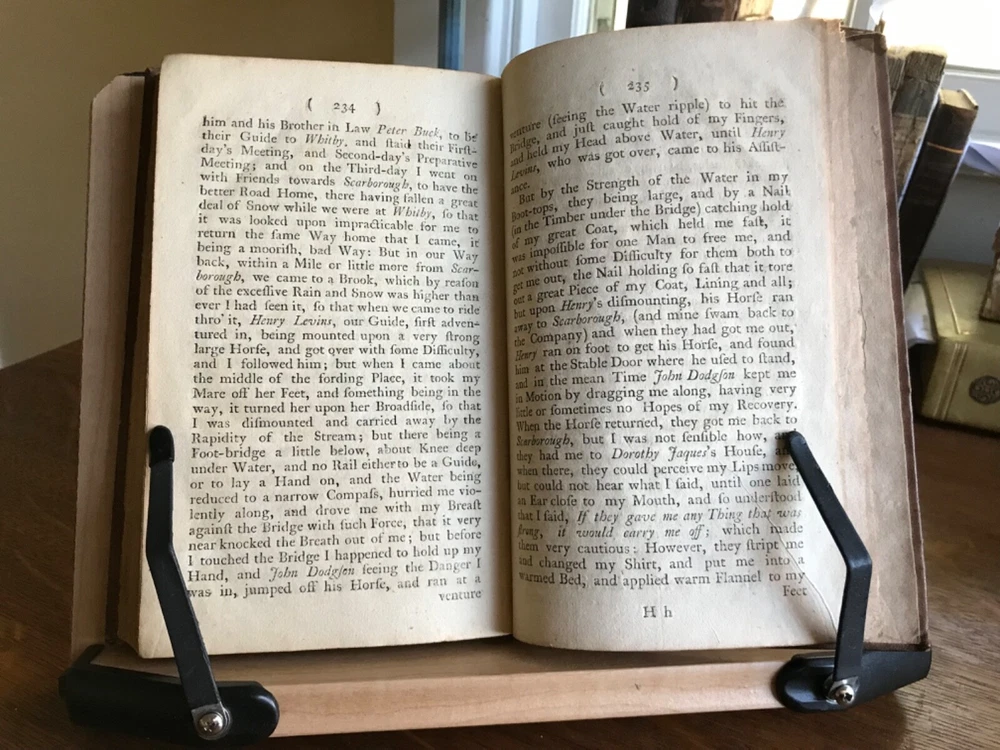 ( 234 )
him and his Brother in Law Peter Buck, to be
their Guide to Whitby, and ſtaid their Firſt-
day's Meeting, and Second-day's Preparative
Meeting; and on the Third-day I went on
with Friends towards Scarborough, to have the
better Road Home, there having fallen a great
deal of Snow while we were at Whitby, ſo that
it was looked upon impracticable for me to
return the ſame Way home that I came, it
being a mooriſh, bad Way: But in our Way
back, within a Mile or little more from Scar-
borough, we came to a Brook, which by reaſon
of the exceſſive Rain and Snow was higher than
ever I had ſeen it, ſo that when we came to ride
thro' it, Henry Levins, our Guide, firſt adven-
tured in, being mounted upon a very ſtrong
large Horſe, and got over with ſome Difficulty,
and I followed him; but when I came about
the middle of the fording Place, it took my
Mare off her Feet, and ſomething being in the
way, it turned her upon her Broadſide, ſo that
I was diſmounted and carried away by the
Rapidity of the Stream; but there being a
Foot-bridge a little below, about Knee deep
under Water, and no Rail either to be a Guide,
or to lay a Hand on, and the Water being
reduced to a narrow Compaſs, hurried me vio-
lently along, and drove me with my Breaſt
againſt the Bridge with ſuch Force, that it very
near knocked the Breath out of me; but before
I touched the Bridge I happened to hold up my
Hand, and John Dodgſon ſeeing the Danger I
was in, jumped off his Horſe, and ran at a
venture
( 235 )
venture (ſeeing the Water ripple) to hit the
Bridge, and juſt caught hold of my Fingers,
and held my Head above Water, until Henry
Levins, who was got over, came to his Aſſiſt-
ance.
But by the Strength of the Water in my
Boot-tops, they being large, and by a Nail
(in the Timber under the Bridge) catching hold
of my great Coat, which held me faſt, it
was impoſſible for one Man to free me, and
not without ſome Difficulty for them both to
get me out, the Nail holding ſo faſt that it tore
out a great Piece of my Coat, Lining and all;
but upon Henry's diſmounting, his Horſe ran
away to Scarborough, (and mine ſwam back to
the Company) and when they had got me out,
Henry ran on foot to get his Horſe, and found
him at the Stable Door where he uſed to ſtand,
and in the mean Time John Dodgſon kept me
in Motion by dragging me along, having very
little or ſometimes no Hopes of my Recovery.
When the Horſe returned, they got me back to
Scarborough, but I was not ſenſible how, and
they had me to Dorothy Jaques's Houſe, and
when there, they could perceive my Lips move,
but could not hear what I ſaid, until one laid
an Ear cloſe to my Mouth, and ſo underſtood
that I ſaid, If they gave me any Thing that was
ſtrong, it would carry me off; which made
them very cautious: However, they ſtript me
and changed my Shirt, and put me into a
warmed Bed, and applied warm Flannel to my
Feet
H h